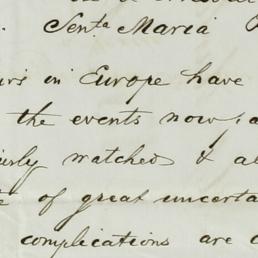 Senta Maria
in Europe have
the events now, a
watched & al
of great uncerta
complications are